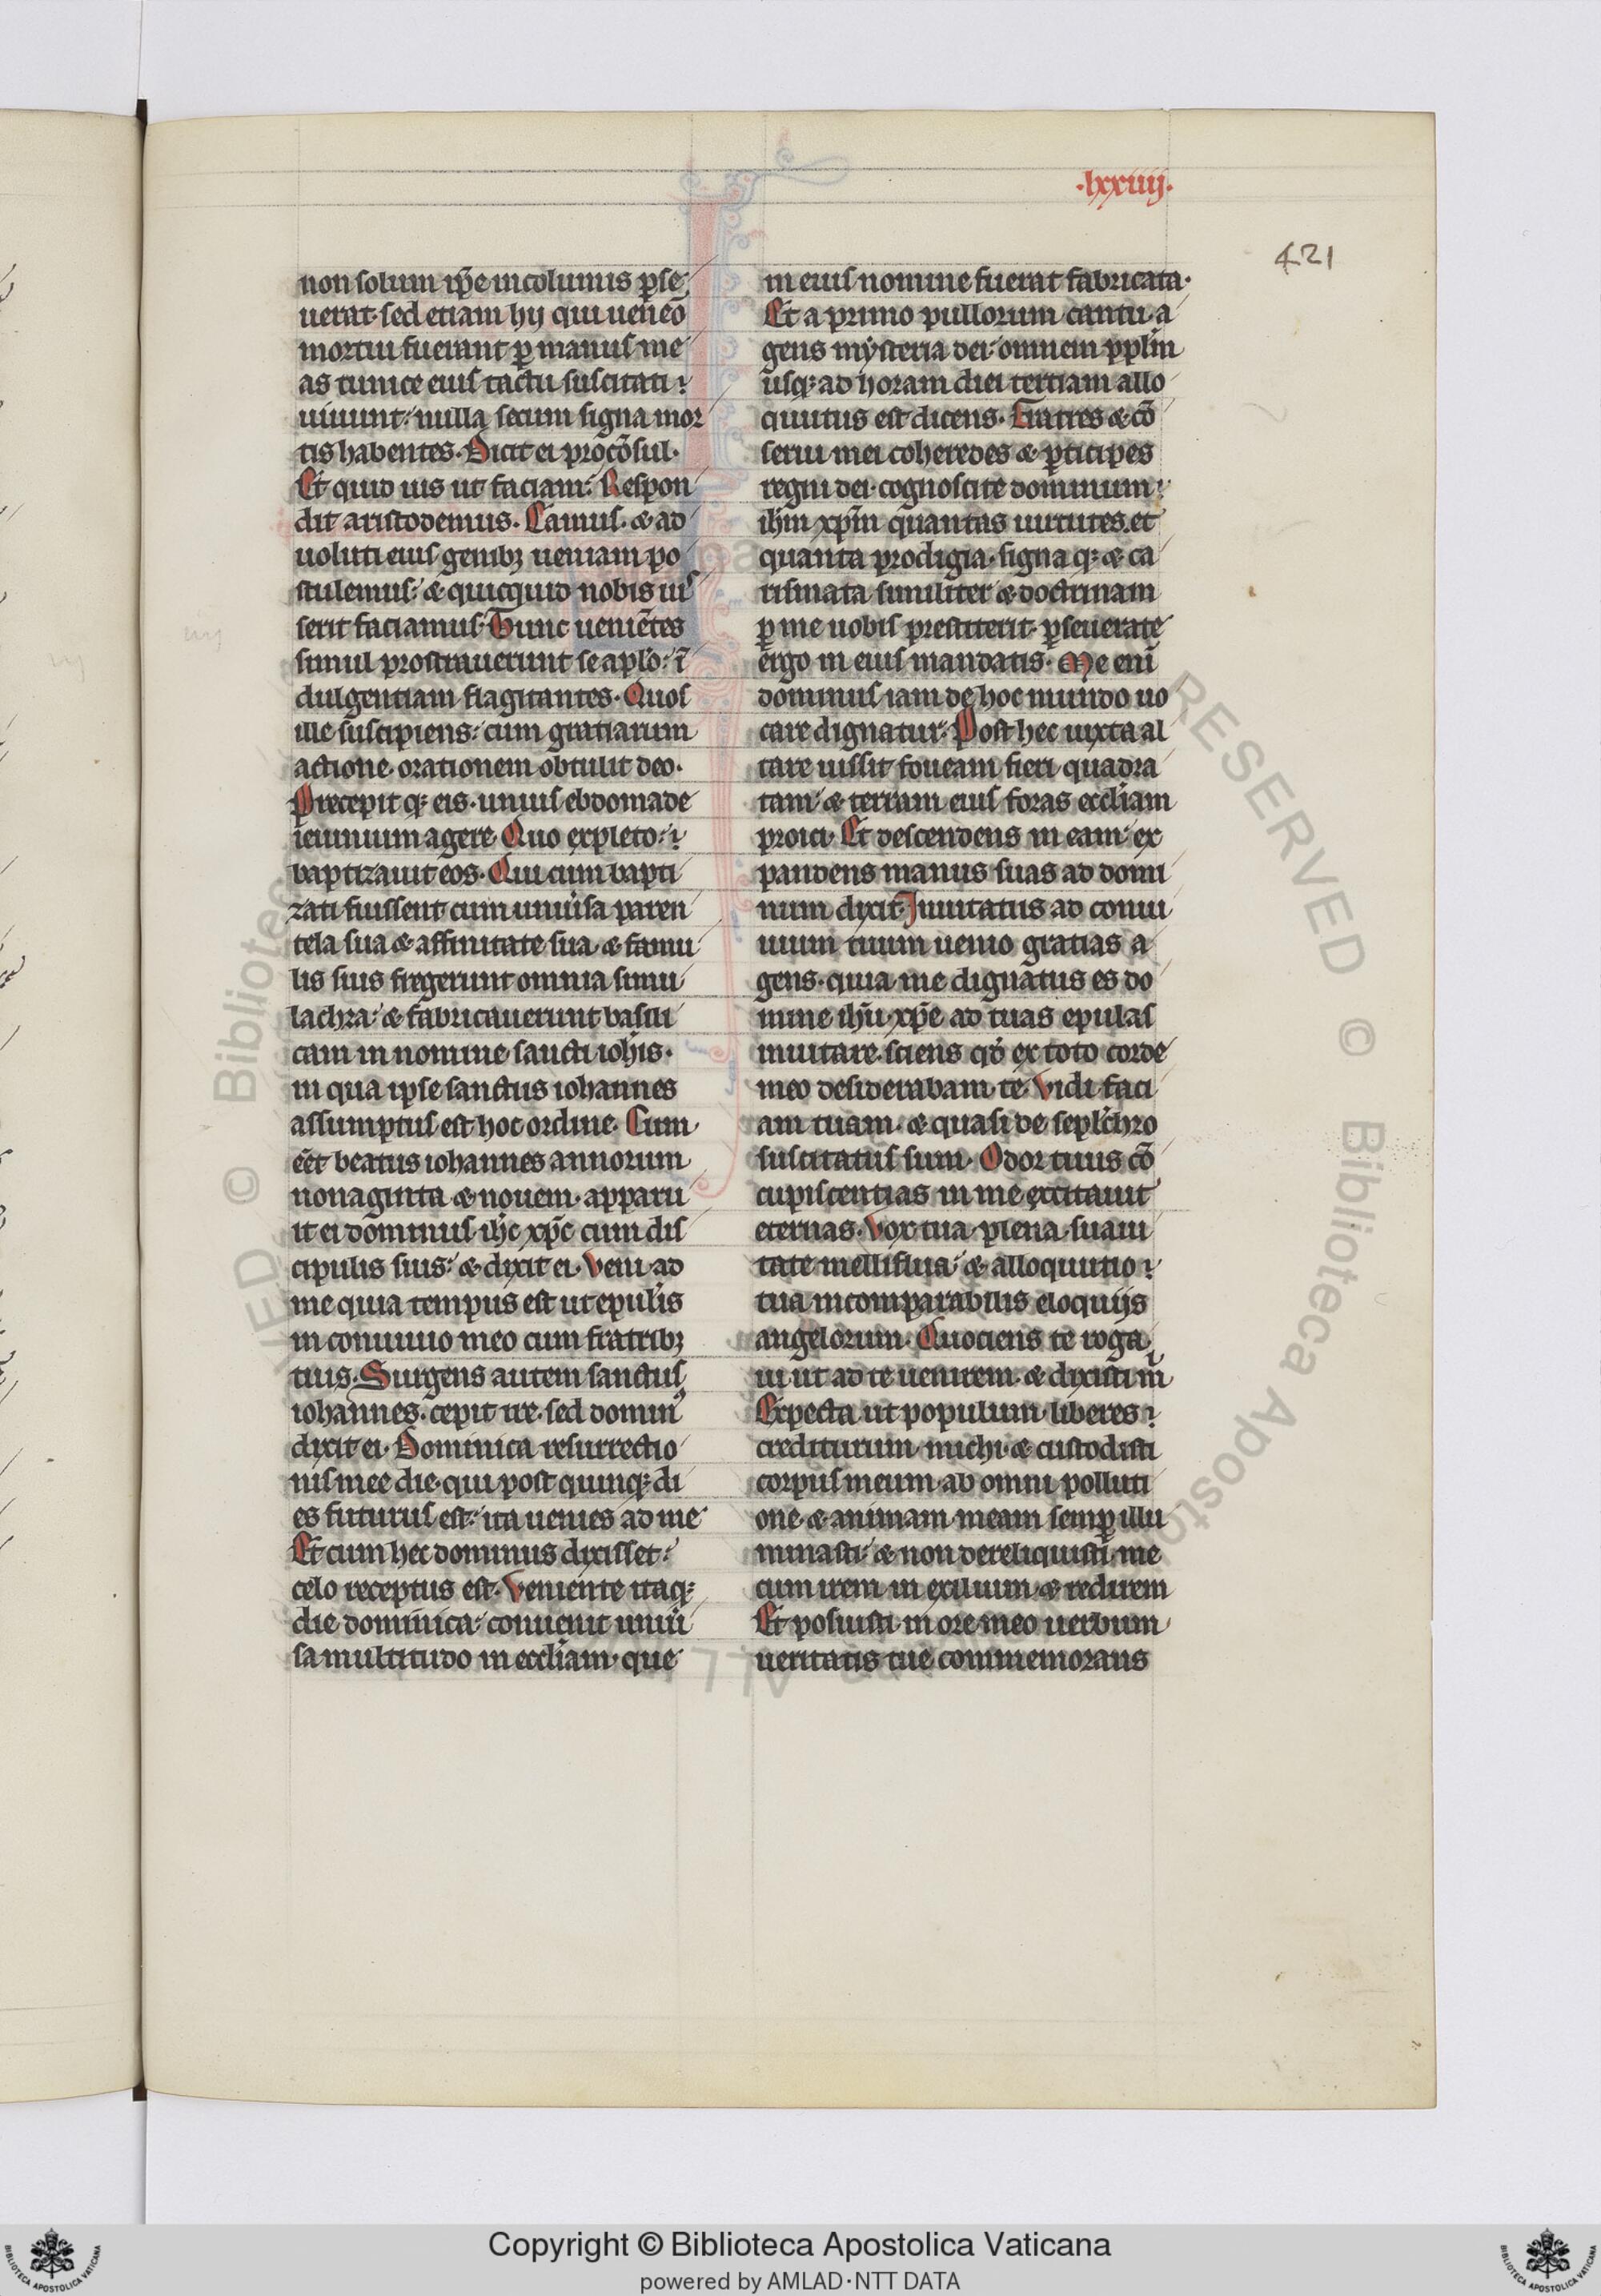 ·lxxiiij·
421
non solum ip̄e incolumis ꝑse
uerat· sed etiam hij qui ueneō
mortui fuerant ꝑ manus me
as tunice eius tactu suscitati
uiuunt: nulla secum signa mor
tis habentes. Dicit ei procōsul.
Et quid uis ut faciam: Respon
dit aristodemus. Eamus. & ad
uoluti eius genibꝫ ueniam po
stulemus: & quicquid nobis ius
serit faciamus. Tunc ueniētes
simul prostrauerunt se aplō: ī
dulgentiam flagitantes. Quos
ille suscipiens: cum gratiarum
actione orationem obtulit deo.
Precepit qꝫ eis· unius ebdomade
ieiunium agere. Quo expleto:
baptizauit eos. Qui cum bapti
zati fuissent cum uniu̓sa paren
tela sua & affinitate sua· & famu
lis suis fregerunt omnia simu
lachra: & fabricauerunt basili
cam in nomine sancti ioh̄is.
in qua ipse sanctus iohannes
assumptus est hoc ordine. Cum
eēt beatus iohannes annorum
nonaginta & nouem· apparu
it ei dominus ih̄c xp̄c cum dis
cipulis suis: & dixit ei. Veni ad
me quia tempus est ut epulis
in conuiuio meo cum fratribꝫ
tuis. Surgens autem sanctus
iohannes. cepit ire. sed domin᷒
dixit ei. Dominica resurrectio
nis mee die· qui post quinqꝫ di
es futurus est: ita uenies ad me
Et cum hec dominus dixisset:
celo receptus est. Veniente itaqꝫ
die dominica: conuenit uniu̓
sa multitudo in eccl̄iam· que
in eius nomine fuerat fabricata·
Et a primo pullorum cantu· a
gens mysteria dei: omnem ppl̄m
usqꝫ ad horam diei tertiam allo
quutus est dicens. Fratres & cō
serui mei coheredes & ꝑticipes
regni dei· cognoscite dominum
ih̄m xp̄m quantas uirtutes. et
quanta prodigia· signa qꝫ & ca
rismata similiter & doctrinam
ꝑ me uobis prestiterit· ꝑseuerate
ergo in eius mandatis. Me eni̅
dominus iam de hoc mundo uo
care dignatur: Post hec iuxta al
tare iussit foueam fieri quadra
tam: & terram eius foras eccl̄iam
proici. Et descendens in eam: ex
pandens manus suas ad domi
num dixit. Inuitatus ad conui
uium tuum uenio gratias a
gens· quia me dignatus es do
mine ih̄u xp̄e ad tuas epulas
inuitare· sciens qd̓ ex toto corde
meo desiderabam te. Vidi faci
am tuam· & quasi de sepl̓chro
suscitatus sum. Odor tuus cō
cupiscentias in me excitauit
eternas. Vox tua plena suaui
tate melliflua: & alloquutio
tua incomparabilis eloquijs
angelorum. Quociens te roga
ui ut ad te uenirem· & dixisti m̓
Expecta ut populum liberes
crediturum michi· & custodisti
corpus meum ab omni polluti
one· & animam meam semꝑ illu
minasti: & non dereliquisti me
cum irem in exilium & redirem
Et posuisti in ore meo uerbum
ueritatis tue commemorans
Copyright © Biblioteca Apostolica Vaticana
powered by AMLAD·NTT DATA